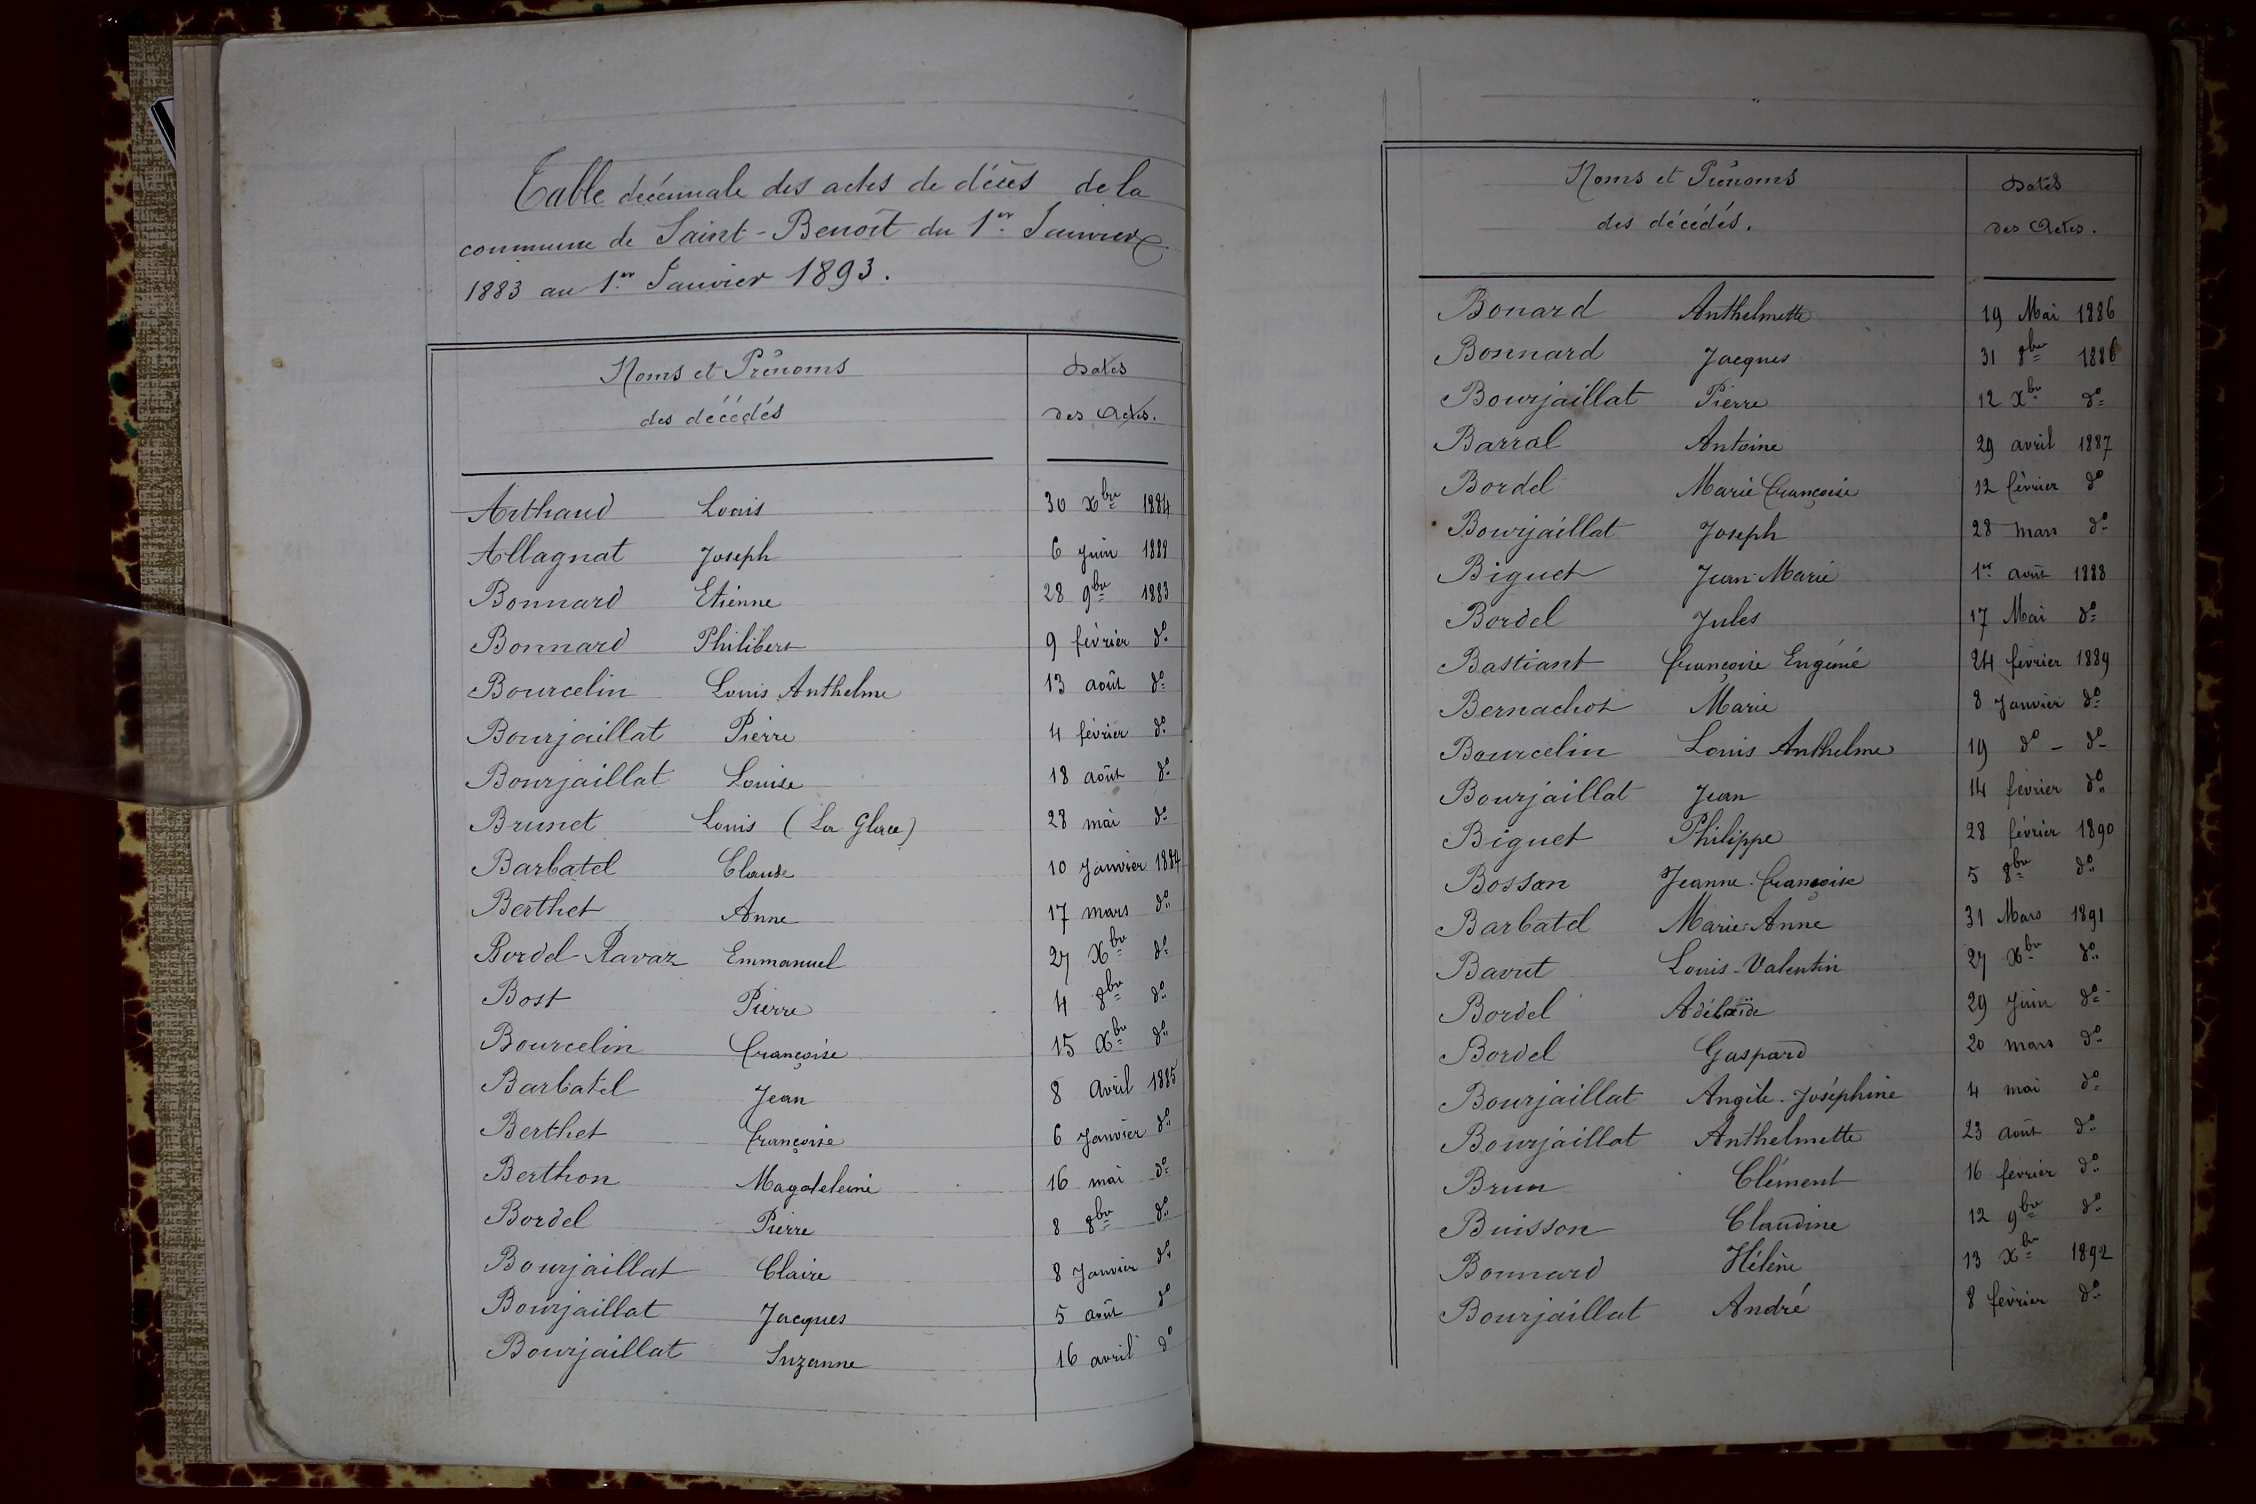 Table décennale des actes de décès de la
commune de Saint-Benoît du 1er Janvier
1883 au 1er Janvier 1893.
Noms et Prénoms Dates
des décédés des Actes.
Arthaud Louis 30 Xbre 1884
Allagnat Joseph 6 Juin 1889
Bonnard Etienne 28 9bre 1883
Bonnard Philibert 9 février do
Bourcelin Louis Anthelme 13 août do
Bourjaillat Pierre 4 février do
Bourjaillat Louise 18 août do
Brunet Louis (La Glace) 28 mai do
Barbatel Claude 10 Janvier 1884
Berthet Anne 17 mars do
Bordel-Ravaz Emmanuel 27 Xbre do
Bost Pierre 4 8bre do
Bourcelin Françoise 15 Xbre do
Barbatel Jean 8 Avril 1885
Berthet Françoise 6 Janvier do
Berthon Magdeleine 16 mai do
Bordel Pierre 8 8bre do
Bourjaillat Claire 8 Janvier do
Bourjaillat Jacques 5 août do
Bourjaillat Suzanne 16 avril do
Noms et Prénoms Dates
des décédés. des Actes.
Bonard Anthelmette 19 Mai 1886
Bonnard Jacques 31 8bre 1886
Bourjaillat Pierre 12 Xbre do
Barral Antoine 29 avril 1887
Bordel Marie Françoise 12 février do
Bourjaillat Joseph 28 mars do
Biguet Jean-Marie 1er août 1888
Bordel Jules 17 Mai do
Bastiant Françoise Eugénie 24 février 1889
Bernachot Marie 8 Janvier do
Bourcelin Louis Anthelme 19 do - do
Bourjaillat Jean 14 février do
Biguet Philippe 28 février 1890
Bosson Jeanne-Françoise 5 8bre do
Barbatel Marie-Anne 31 Mars 1891
Bavut Louis-Valentin 27 Xbre do
Bordel Adélaïde 29 Juin do
Bordel Gaspard 20 mars do
Bourjaillat Angèle-Joséphine 4 mai do
Bourjaillat Anthelmette 23 août do
Brun Clément 16 février do
Buisson Claudine 12 9bre do
Bonnard Hélène 13 Xbre 1892
Bourjaillat André 8 février do